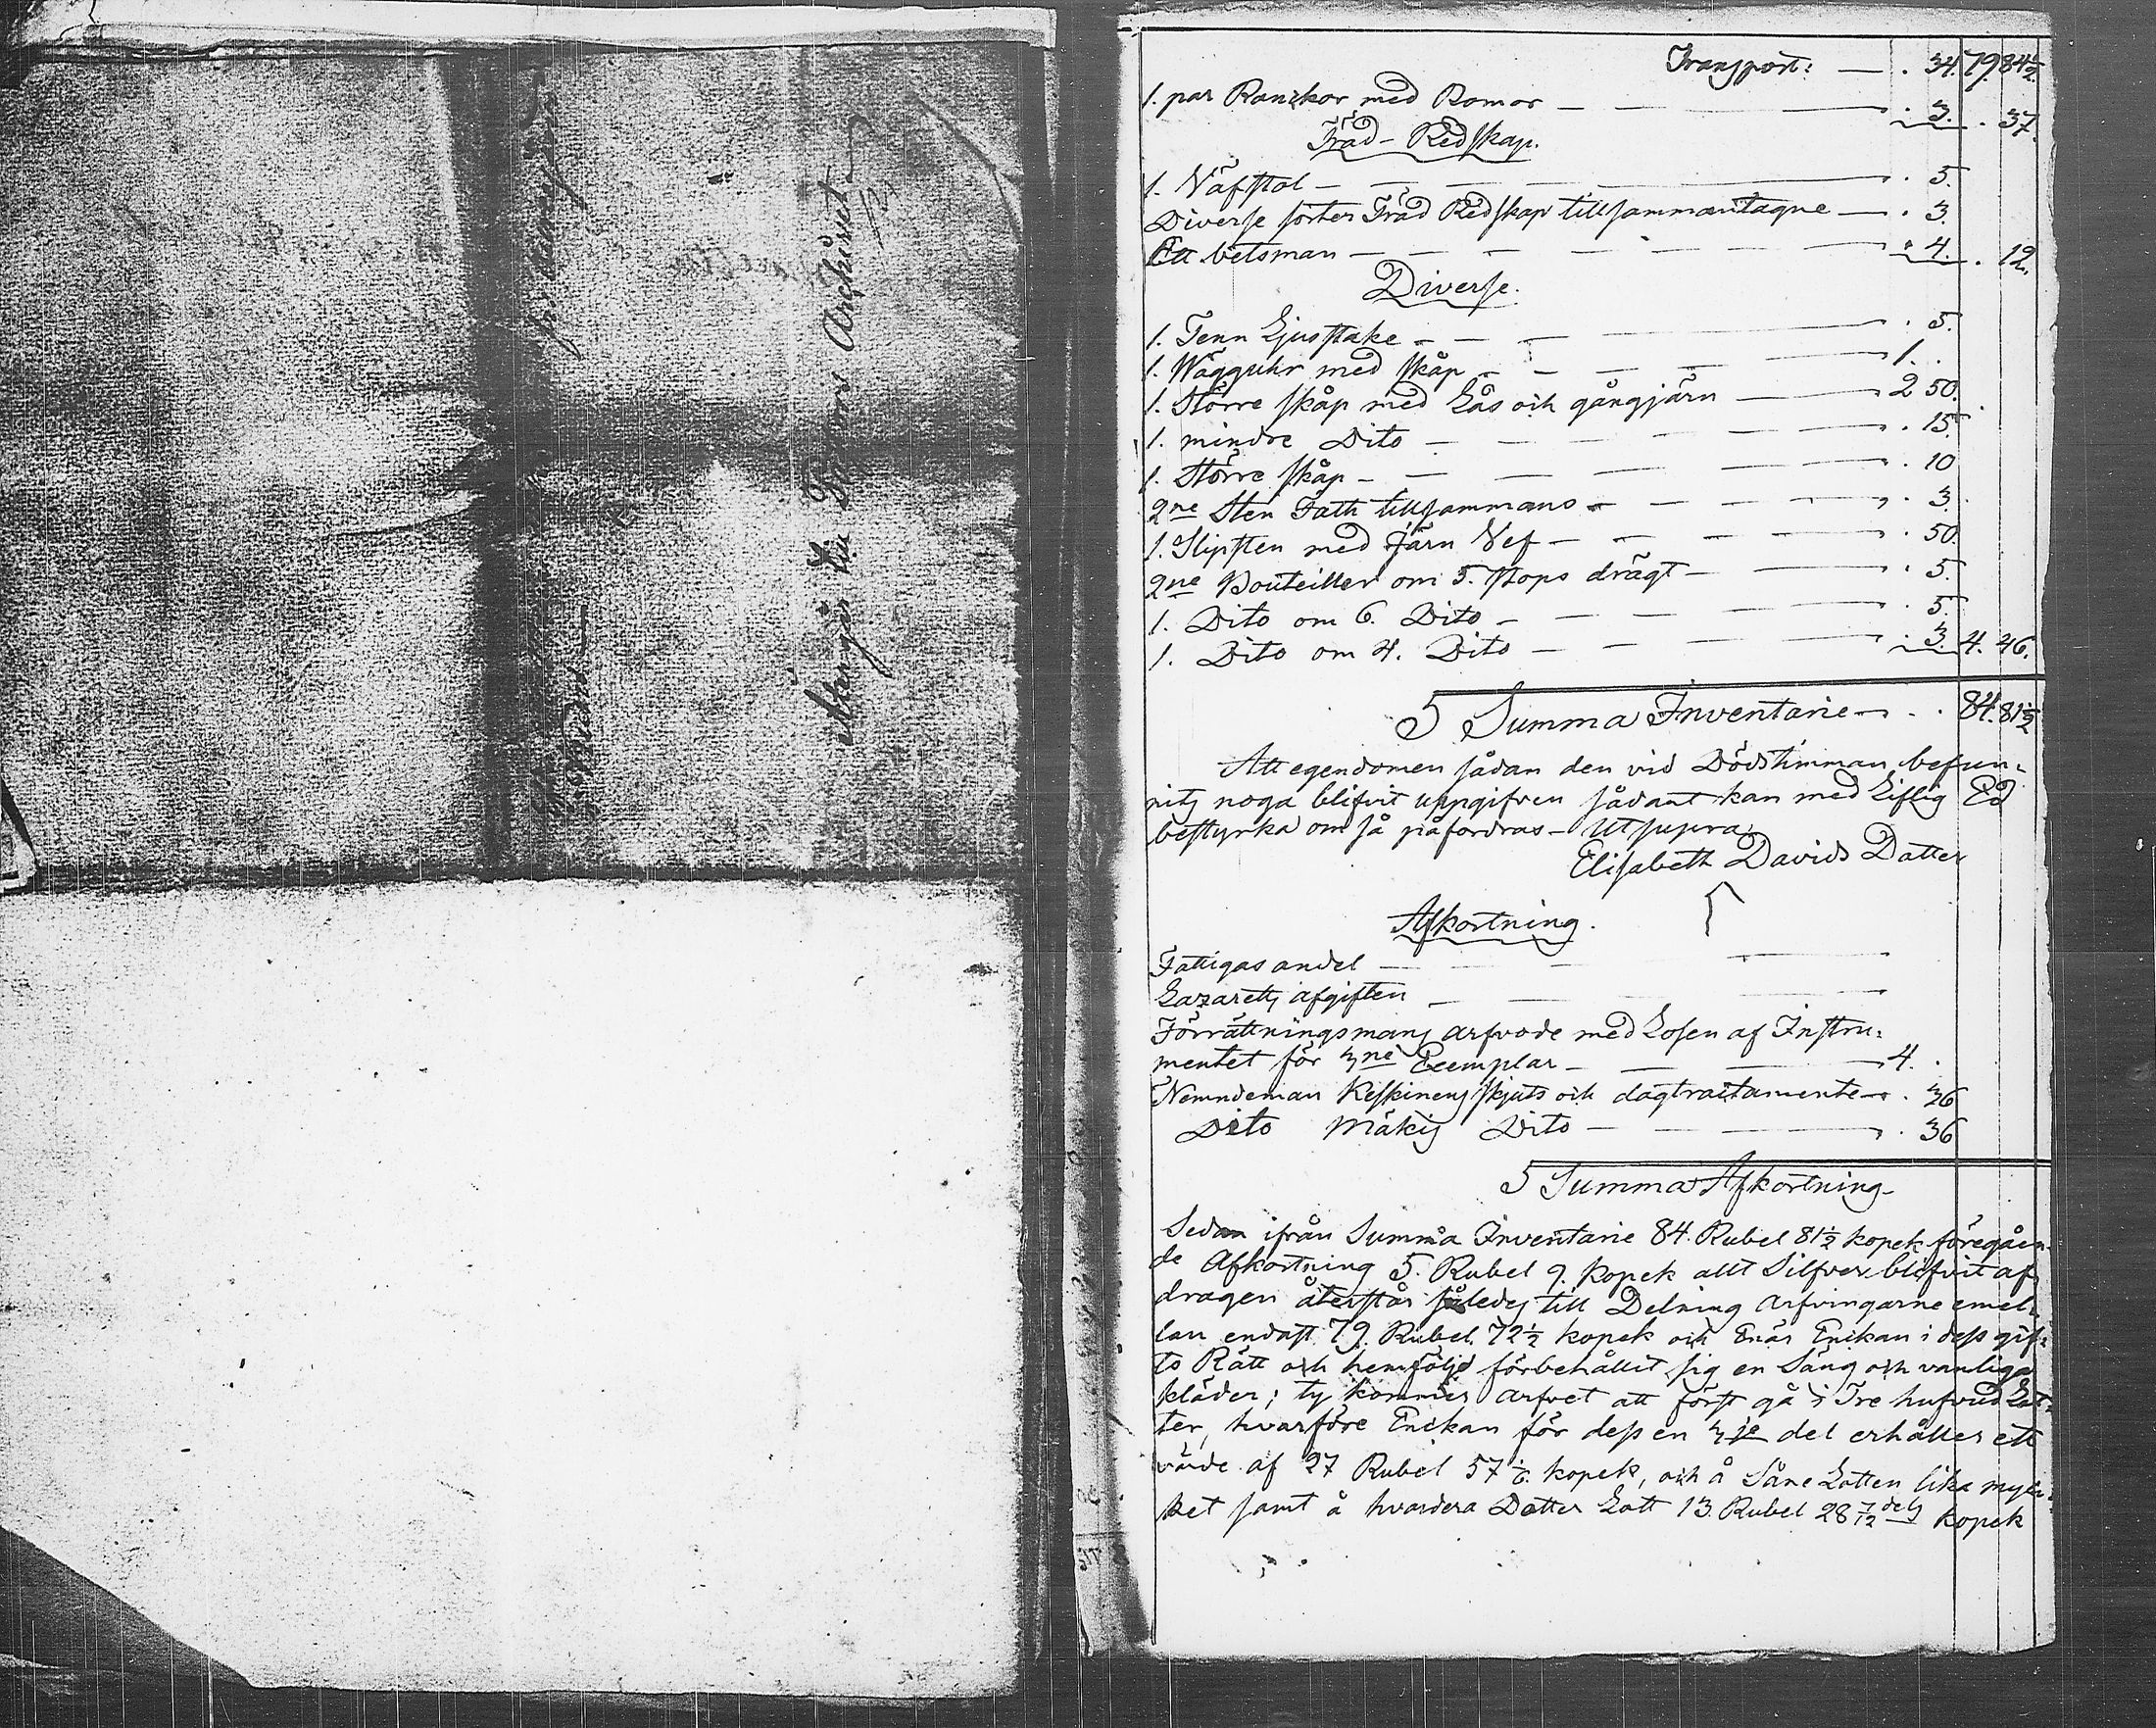 Aktangår till Arckivet
Transport: — . 34. 79 84½.
1. par Ranckor med Bomor — — . 3. . 37.
Träd-Redskap.
1. Väfstol — — — — . 5.
Diverse sorter Träd Redskap tillsammantagne — . 3.
Ett betsman — — — — . 4. . 12.
Diverse.
1. Tenn Ljusstake — — — . 5.
1. Wägguhr med skåp — — — 1. .
1. Större skåp med Lås och gångjärn — 2 50.
1. mindre Dito — — — . 15.
1. Större skåp — — — . 10
2ne Sten Fatt tillsammans — — . 3.
1. Slipsten med Järn Vef — — — . 50.
2ne Bouteiller om 5. stops drägt — — . 5.
1. Dito om 6. Dito — — . 5.
1. Dito om 4. Dito — — . 3. 4. 46.
S Summa Inventarie — . . 84. 81½
Att egendomen sådan den vid Dödstimman befun-
nits noga blifvit uppgifven sådant kan med Liflig Ed
bestyrka om så påfordras — Ut supra
Elisabeth Davids Datter
Afkortning.
Fattigas andel — — —
Lazaretts afgiften — — —
Förrättningsmans arfvode med Lösen af Instru-
mentet för 3ne Exemplar — — 4. .
Nemndeman Keskinens skjuts och dagtractamente — . 36
Dito Mäkis Dito — — . 36
S Summa Afkortning —
Sedan ifrån Summa Inventarie 84. Rubel 81½ kopek föregåen-
de Afkortning 5. Rubel 9. Kopek allt Silfver blifvit af
dragen återstår således till Delning Arfvingarne emel-
lan endast 79. Rubel 72½ kopek och Enär Enckan i dess gif-
to Rätt och hemfölje förbehållit sig en Säng och vanliga
kläder; ty kommer arfvet att först gå i Tre hufvud Lot-
ter, hvarföre Enckan för dess en 3je del erhåller ett
värde af 27 Rubel 57 1/6. kopek, och å Såne Lotten lika myc-
ket samt å hvardera Dotter Lott 13. Rubel 28 7/12 dels kopek